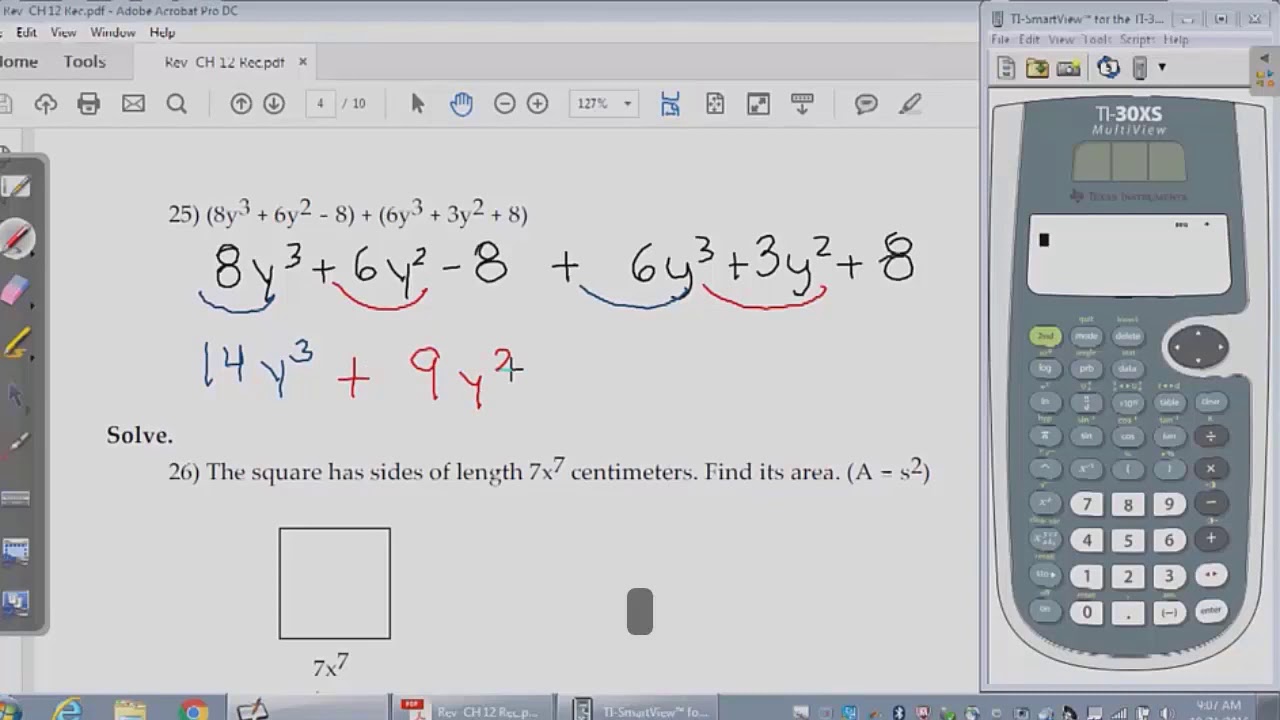 Rev CH 12 Rec.pdf - Adobe Acrobat Pro DC
Edit View Window Help
ome Tools Rev CH 12 Rec.pdf ×
4 / 10 127%
25) (8y³ + 6y² - 8) + (6y³ + 3y² + 8)
8y³ + 6y² - 8 + 6y³ + 3y² + 8
14y³ + 9y²
Solve.
26) The square has sides of length 7x⁷ centimeters. Find its area. (A = s²)
7x⁷
TI-SmartView™ for the TI-3...
File Edit View Tools Scripts Help
TI-30XS
MultiView
TEXAS INSTRUMENTS
quit insert
2nd mode delete
log prb data
ln table clear
π sin cos tan ÷
^ x⁻¹ ( ) ×
x² 7 8 9 −
4 5 6 +
sto▸ 1 2 3
on 0 . (−) enter
Rev CH 12 Rec.p...
TI-SmartView™ fo...
9:07 AM